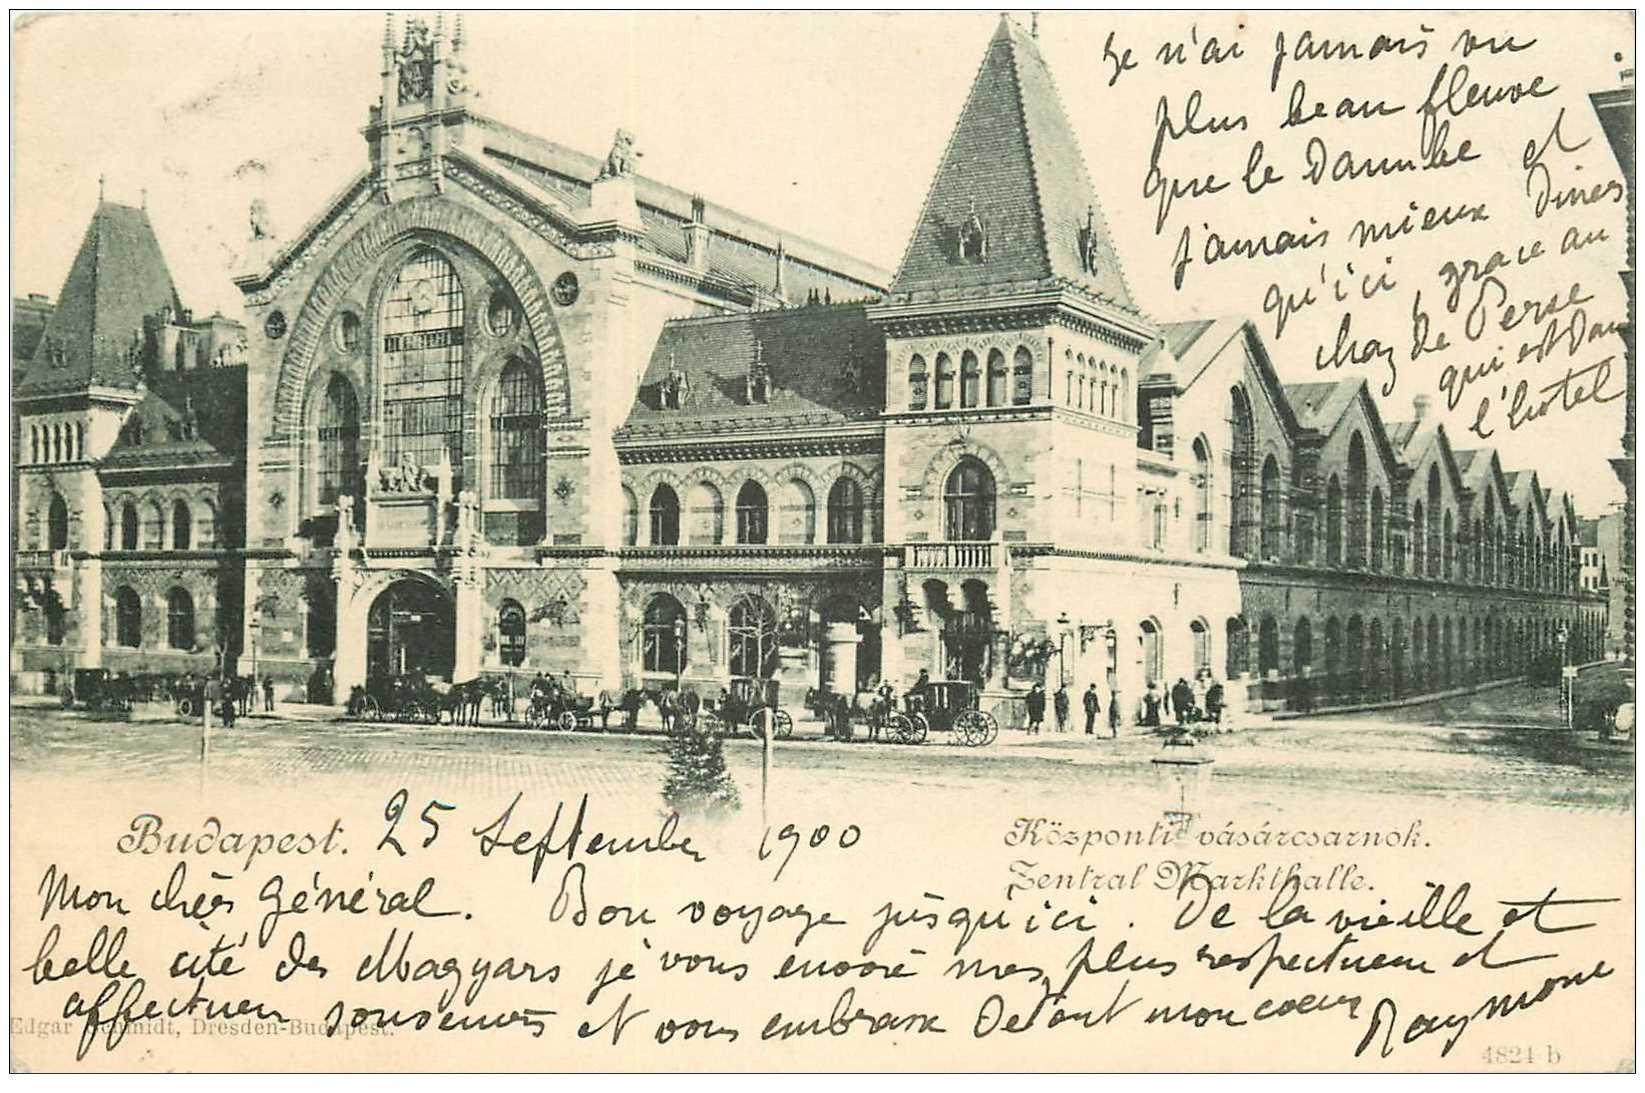 Je n'ai jamais vu
plus beau fleuve
que le Danube et
jamais mieux dines
qu'ici, grace au
chaz de Perse
qui est dans
l'hotel
Budapest. 25 September 1900
Központi vásárcsarnok.
Zentral Markthalle.
Mon cher Général. Bon voyage jusqu'ici. De la vieille et
belle cité des Magyars je vous envoie mes plus respectueux et
affectueux souvenirs et vous embrasse de tout mon coeur
Raymone
Edgar Schmidt, Dresden-Budapest.
4824 b